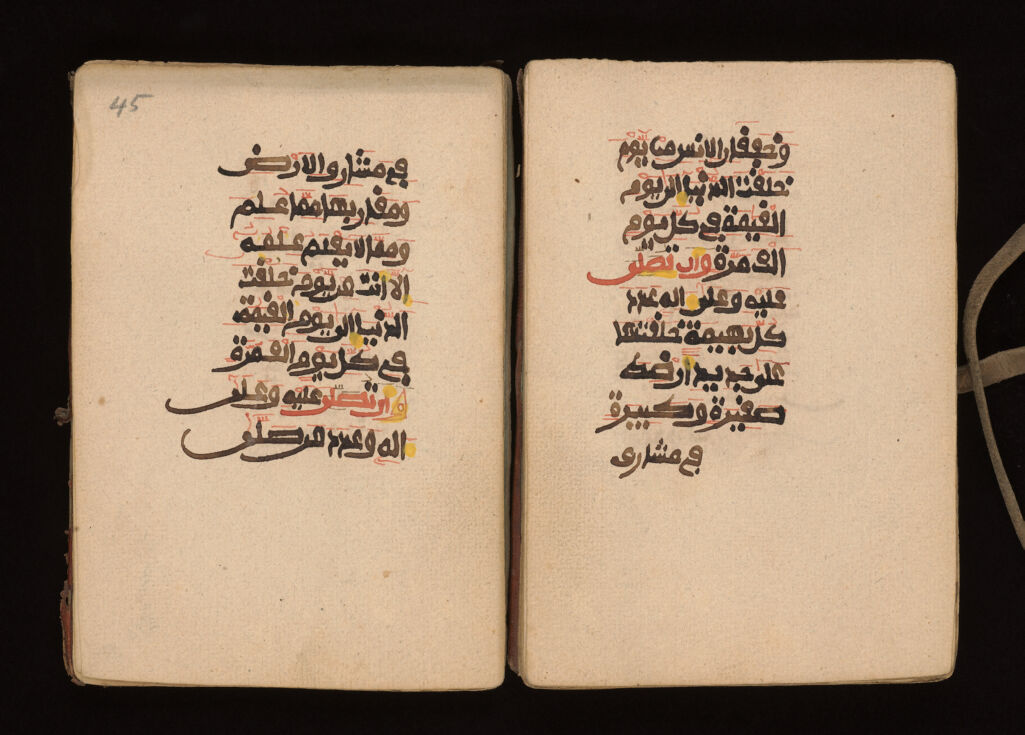 وخفقان الانس من يوم
خلقت الدنيا الى يوم
القيمة في كل يوم
الف مرة وان تصلي
عليه وعلى اله عدد
كل بهيمة خلقتها
على جديد ارضك
صغيرة وكبيرة
في مشارق
45
في مشارق الارض
ومغاربها مما علم
ومما لا يعلم علمه
الا انت من يوم خلقت
الدنيا الى يوم القيمة
في كل يوم الف مرة
وان تصلي عليه وعلى
اله وعدد من صلى